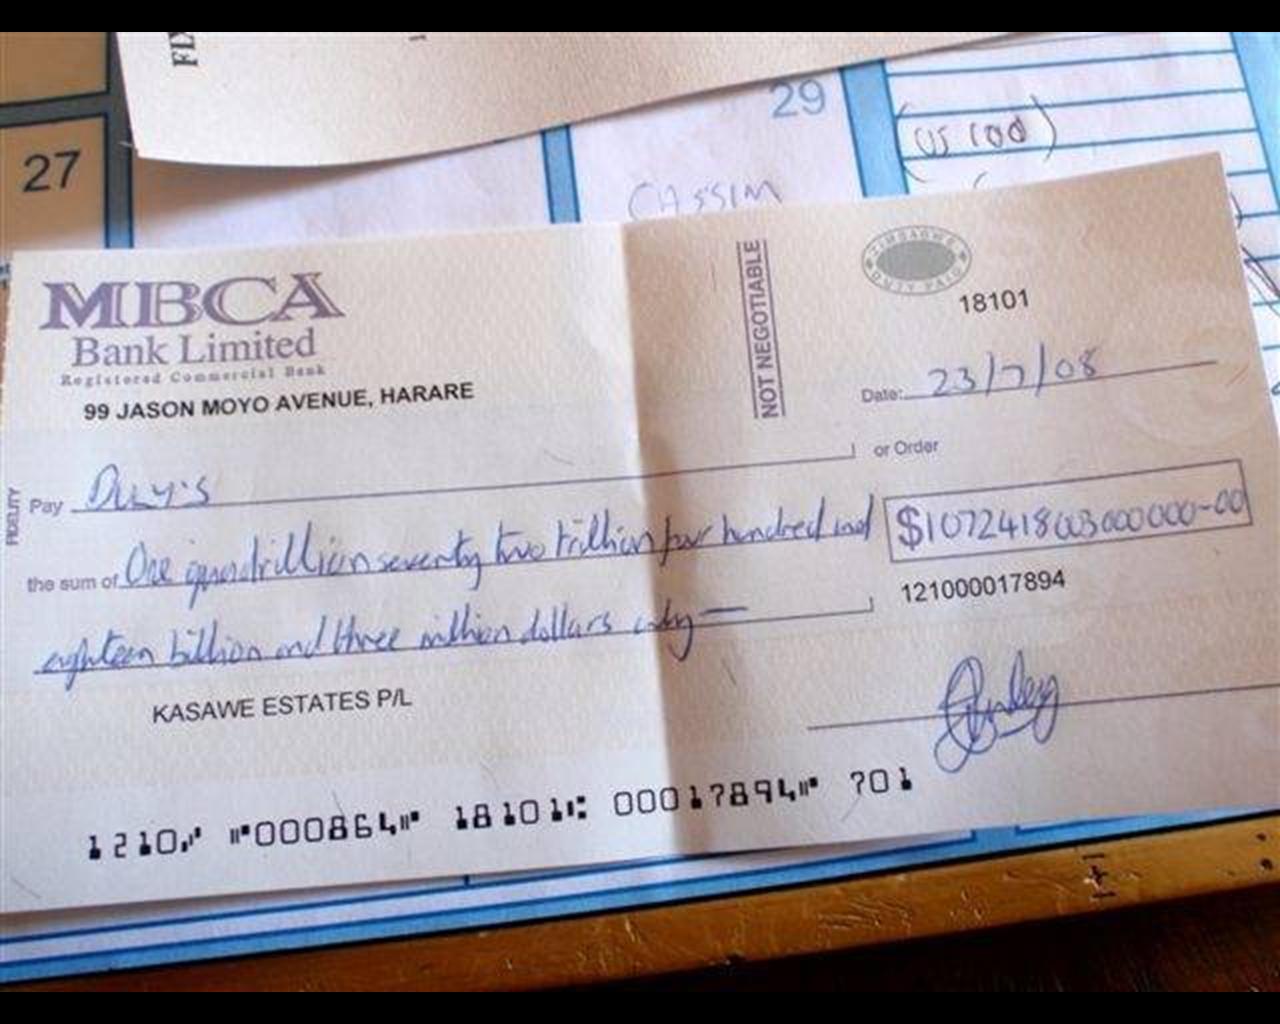 FL
27
29
(US 100)
CASSIM
MBCA
Bank Limited
Registered Commercial Bank
99 JASON MOYO AVENUE, HARARE
NOT NEGOTIABLE
ZIMBABWE
DUTY PAID
18101
Date: 23/7/08
FIDELITY
Pay DULY'S or Order
the sum of One quadrillion seventy two trillion four hundred and
$1072418003000000-00
eighteen billion and three million dollars only —
121000017894
KASAWE ESTATES P/L
1210 000864 18101 00017894 701